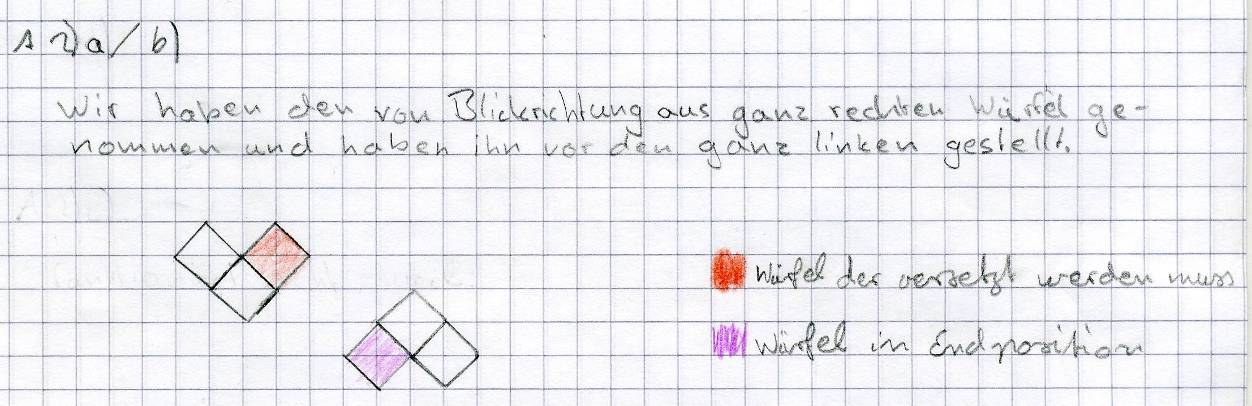 1 2) a / b)
Wir haben den von Blickrichtung aus ganz rechten Würfel ge-
nommen und haben ihn vor den ganz linken gestellt.
Würfel der versetzt werden muss
Würfel in Endposition